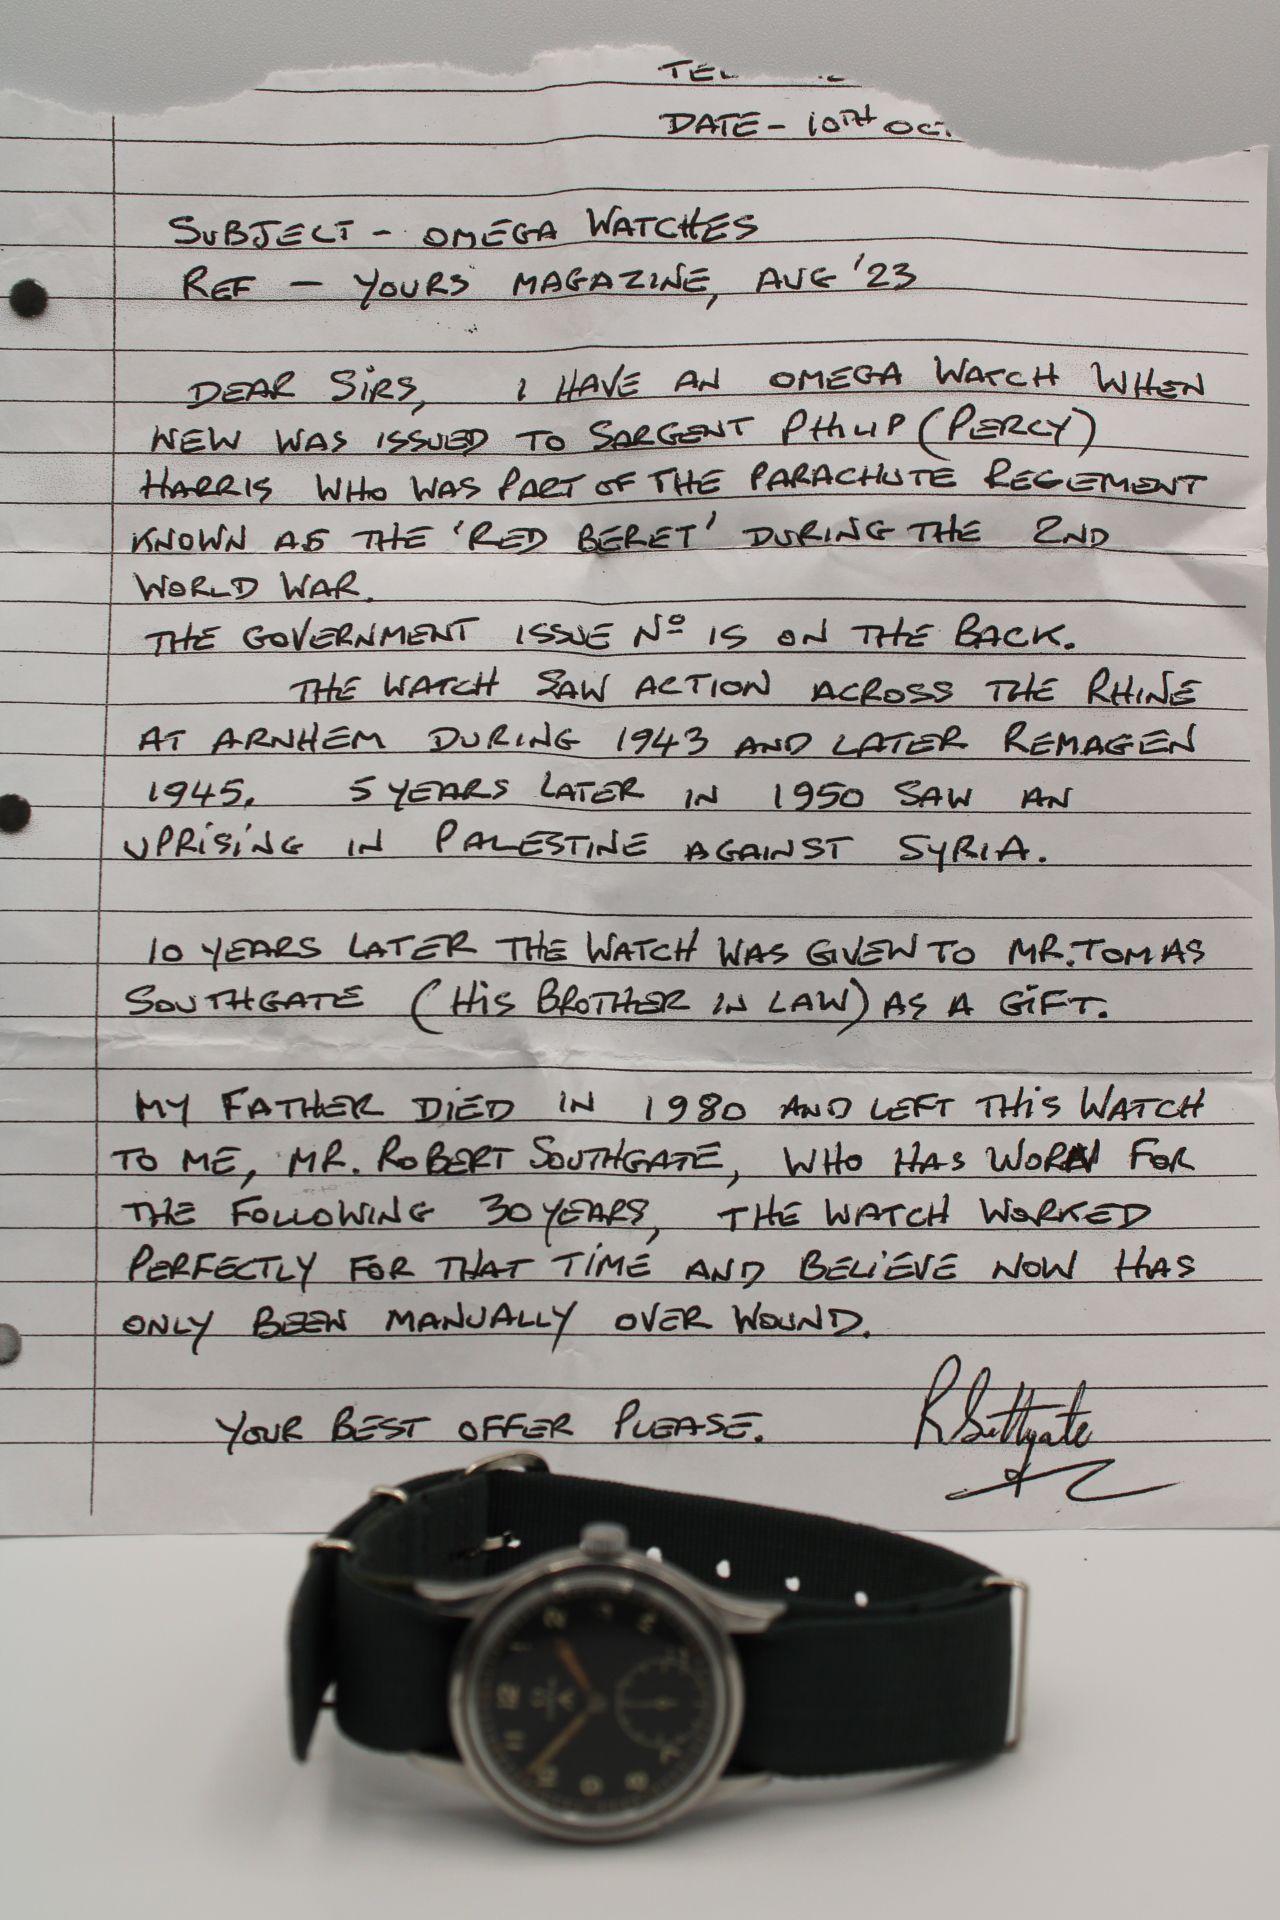 DATE - 10TH OCT
SUBJECT - OMEGA WATCHES
REF - YOURS MAGAZINE, AUG '23
DEAR SIRS, I HAVE AN OMEGA WATCH WHEN
NEW WAS ISSUED TO SARGENT PHILIP (PERCY)
HARRIS WHO WAS PART OF THE PARACHUTE REGEMENT
KNOWN AS THE 'RED BERET' DURING THE 2ND
WORLD WAR.
THE GOVERNMENT ISSUE Nº IS ON THE BACK.
THE WATCH SAW ACTION ACROSS THE RHINE
AT ARNHEM DURING 1943 AND LATER REMAGEN
1945. 5 YEARS LATER IN 1950 SAW AN
UPRISING IN PALESTINE AGAINST SYRIA.
10 YEARS LATER THE WATCH WAS GIVEN TO MR. TOMAS
SOUTHGATE (HIS BROTHER IN LAW) AS A GIFT.
MY FATHER DIED IN 1980 AND LEFT THIS WATCH
TO ME, MR. ROBERT SOUTHGATE, WHO HAS WORN FOR
THE FOLLOWING 30 YEARS, THE WATCH WORKED
PERFECTLY FOR THAT TIME AND BELIEVE NOW HAS
ONLY BEEN MANUALLY OVER WOUND.
YOUR BEST OFFER PLEASE.
R Southgate
12
11
10
1
2